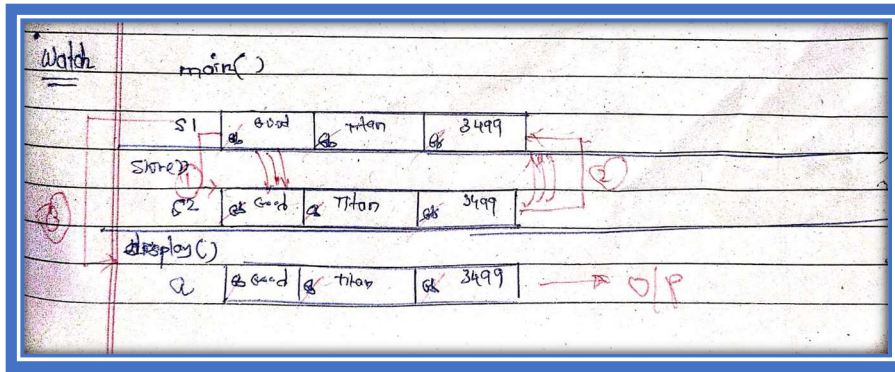 Watch
main()
S1 Good Titan 3499
Store()
1 2
S2 Good Titan 3499
3
display()
a Good Titan 3499 O/P